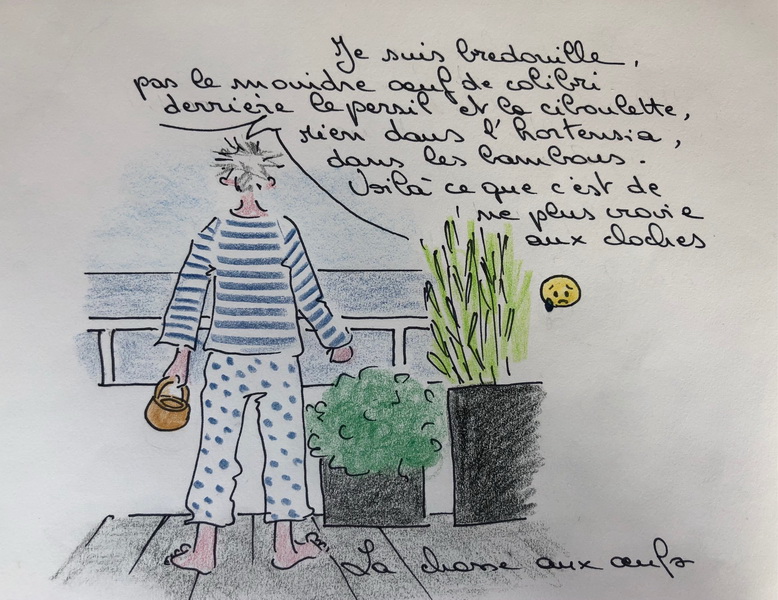 Je suis bredouille,
pas le moindre œuf de colibri
derrière le persil et la ciboulette,
rien dans l'hortensia,
dans les bambous.
Voilà ce que c'est de
ne plus croire
aux cloches
La chasse aux œufs